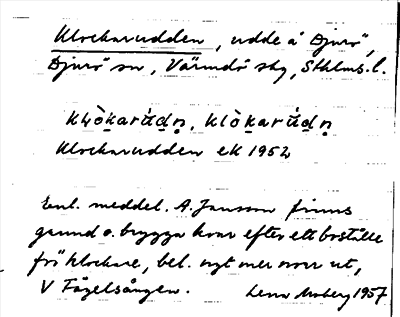 Klockarudden, udde å Djurö,
Djurö sn, Värmdö skg, Sthlms. l.
Klockarudden ek 1952
Enl. meddel. A. Jansson finns
grund o. brygga kvar efter ett boställe
för klockare, bel. ngt mer norr ut,
V Fågelsången. Lena Moberg 1957